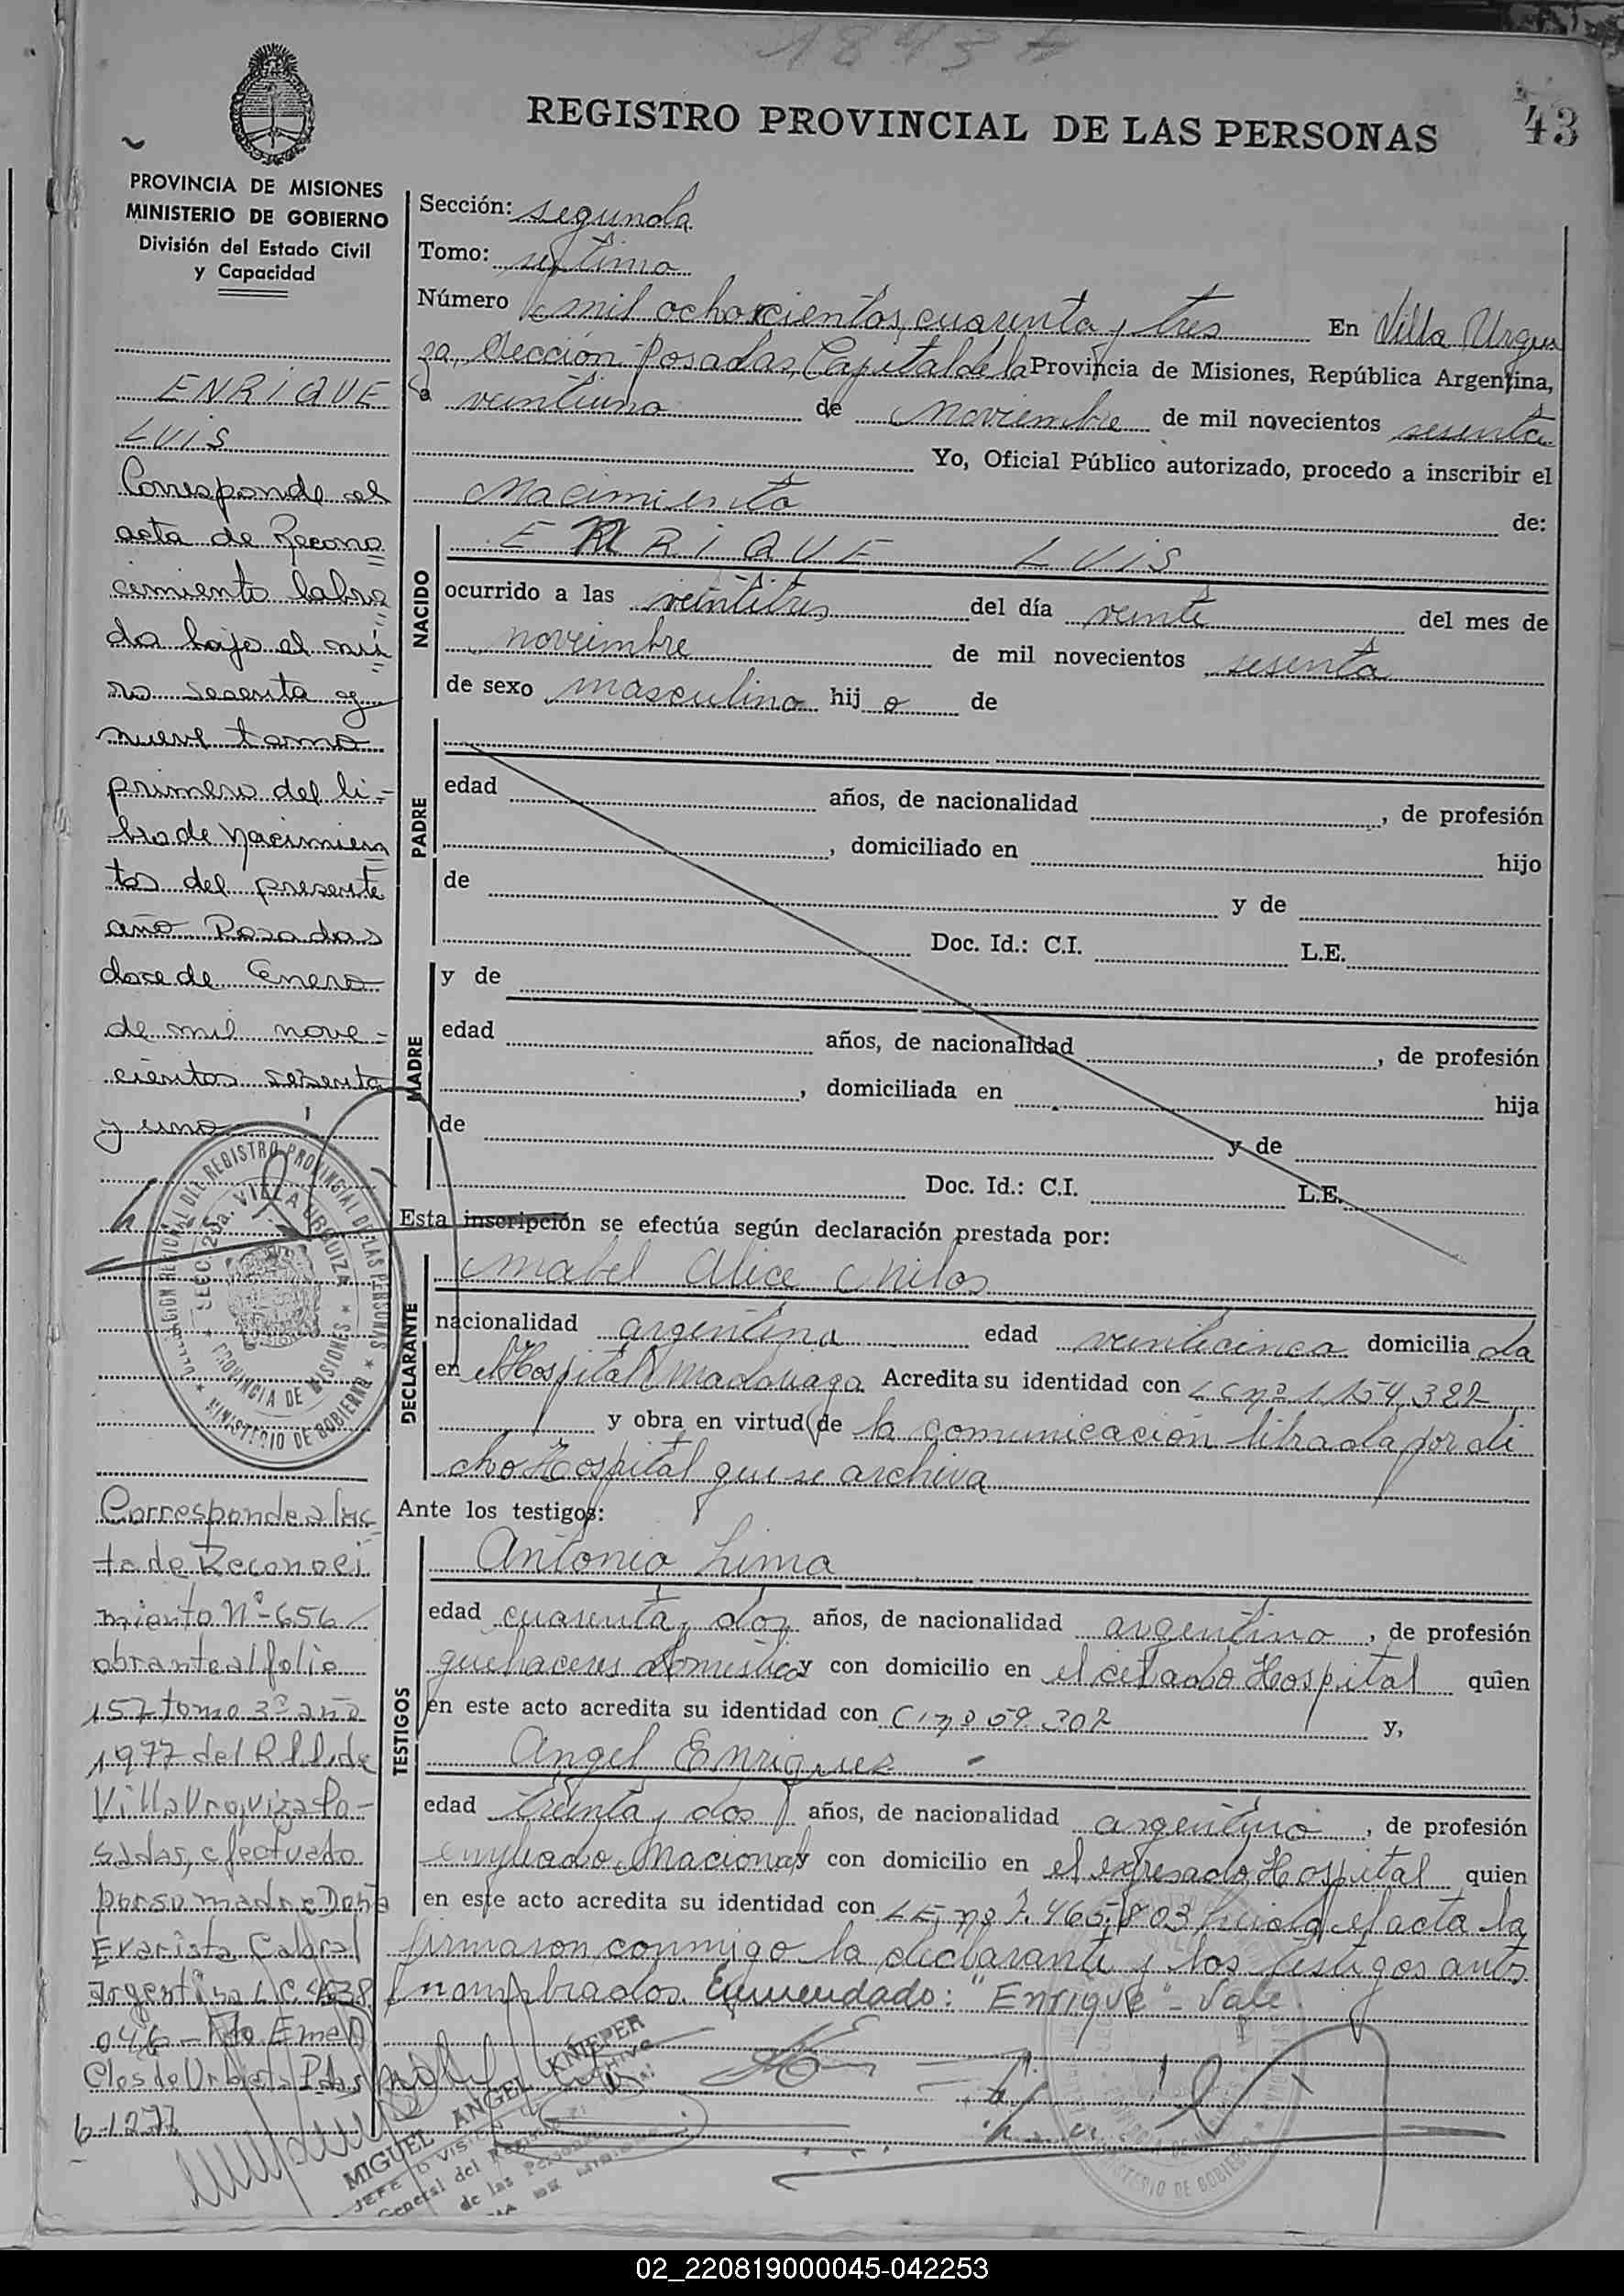 43
REGISTRO PROVINCIAL DE LAS PERSONAS
PROVINCIA DE MISIONES
MINISTERIO DE GOBIERNO
División del Estado Civil
y Capacidad
ENRIQUE
LUIS
Corresponde al
acta de Recono
cimiento labra
da bajo el nú
ro sesenta y
nueve tomo
primero del li-
bro de Nacimien
tos del presente
año Posadas
doce de Enero
de mil nove-
cientos sesenta
y uno
Corresponde al ac
ta de Reconoci
miento Nº 656
obrante al folio
157 tomo 3º año
1977 del R.P. de
Villa Urquiza Po-
sadas, efectuado
por su madre Doña
Evarista Cabral
argentina L.C.
046
6-12-77
Sección: segunda
Tomo: septimo
Número mil ochocientos cuarenta y tres En Villa Urqui
za, Sección Posadas, Capital de la Provincia de Misiones, República Argentina,
a veintiuno de noviembre de mil novecientos sesenta
Yo, Oficial Público autorizado, procedo a inscribir el
Nacimiento de:
NACIDO
ENRIQUE LUIS
ocurrido a las veintitres del día veinte del mes de
noveimbre de mil novecientos sesenta
de sexo masculino hijo de
PADRE
edad años, de nacionalidad , de profesión
, domiciliado en hijo
de y de
Doc. Id.: C.I. L.E.
MADRE
y de
edad años, de nacionalidad , de profesión
, domiciliada en hija
de y de
Doc. Id.: C.I. L.E.
Esta inscripción se efectúa según declaración prestada por:
DECLARANTE
Mabel Alice Milos
nacionalidad argentina edad veinticinco domiciliada
en el Hospital Madariaga Acredita su identidad con LC nº 1.154.322
y obra en virtud de la comunicación librada por di
cho Hospital que se archiva
Ante los testigos:
TESTIGOS
Antonio Lima
edad cuarenta y dos años, de nacionalidad argentino , de profesión
quehaceres domestico y con domicilio en el citado Hospital quien
en este acto acredita su identidad con C.I. 59.302 y,
Angel Enriquez
edad treinta y dos años, de nacionalidad argentino , de profesión
empleado Nacional y con domicilio en el expresado Hospital quien
en este acto acredita su identidad con L.E. nº 7.465.803 Leida el acta la
firmaron conmigo la declarante y los testigos antes
nombrados. Enmendado: "Enrique" - Vale.
MIGUEL ANGEL KNIEPER
02_220819000045-042253